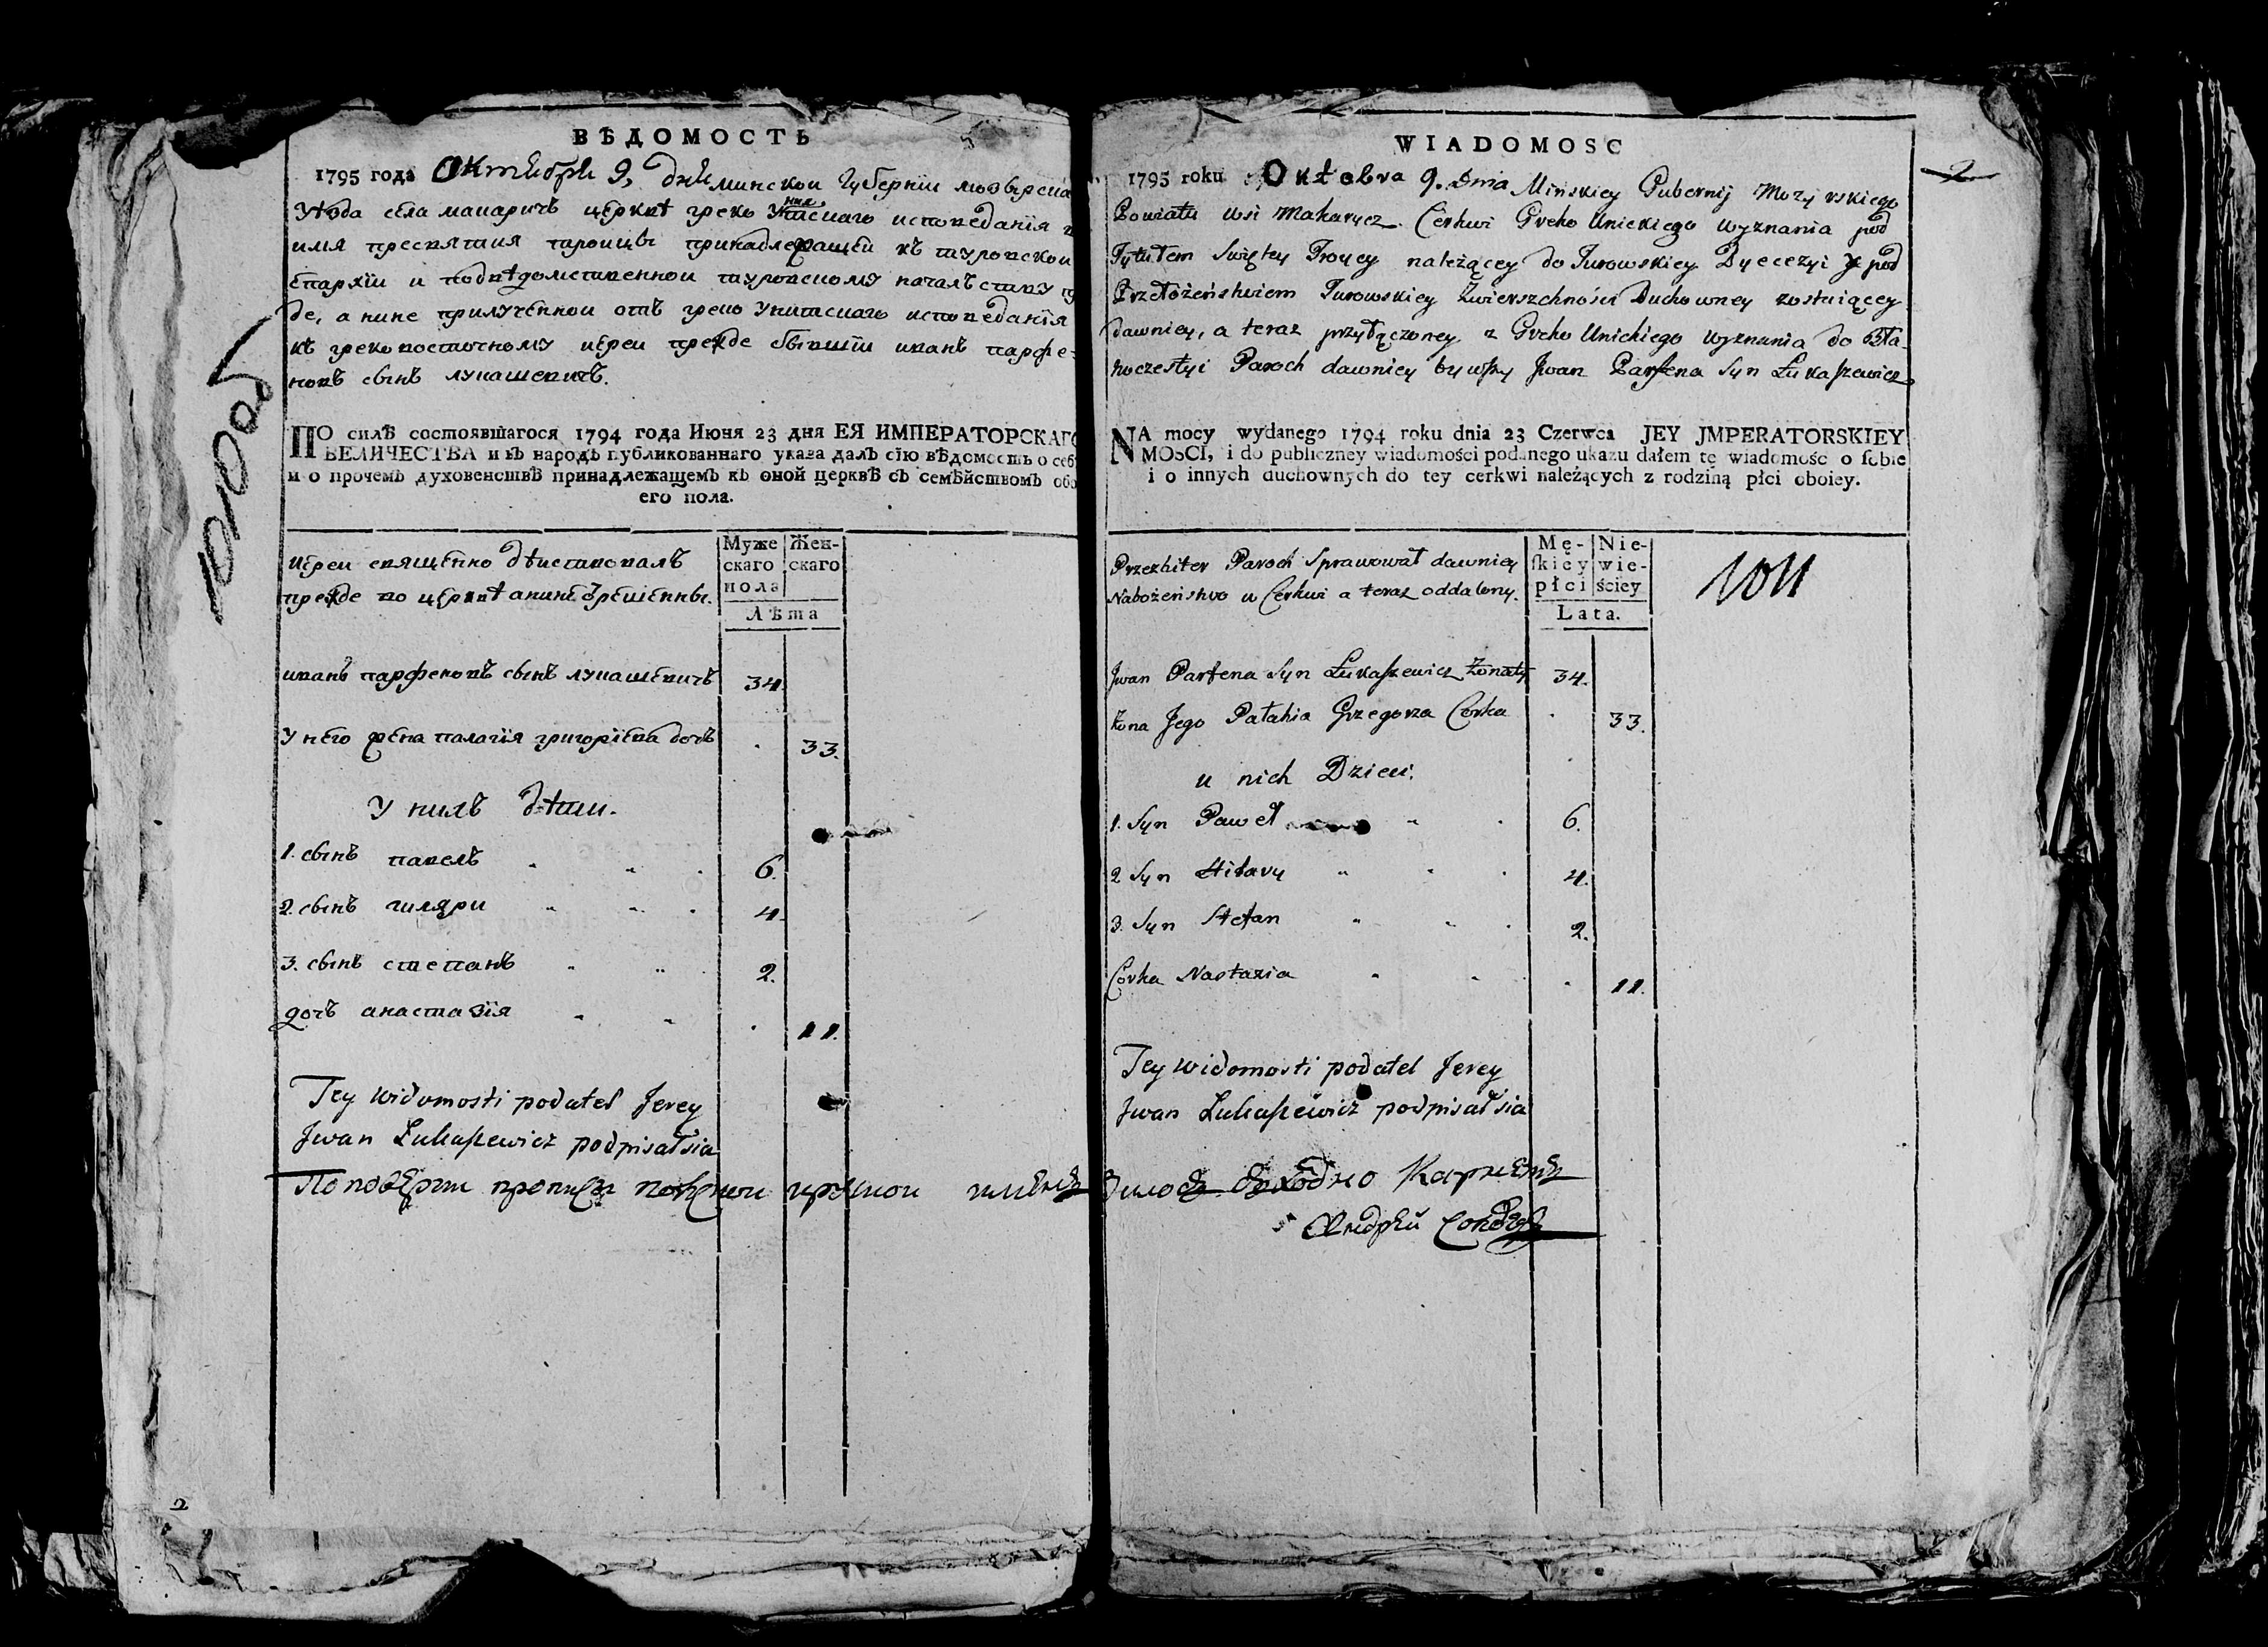 ВѢДОМОСТЬ
1795 года Октября 9, дня минской Губернїи мозырска
Уѣзда села макаричъ церквѣ греко Унитскаго исповеданїя
имя пресвятия тароицы принадлежащей къ туровской
епархїи и подвѣдомственной туровскому началъству
де, а нине прилученной отъ греко Унитскаго исповеданїя
къ грековосточному иереи прежде бывшїи иванъ парфе-
новъ сынъ лукашевичъ.
ПО силѣ состоявшагося 1794 года Июня 23 дня ЕЯ ИМПЕРАТОРСКАГО
ВЕЛИЧЕСТВА и къ народъ публикованнаго указа далъ сїю вѣдомость о себ
и о прочемъ духовенствѣ принадлежащемъ къ оной церквѣ съ семѣйствомъ обо
его пола.
Муже скаго пола
Жен- скаго
Лѣта
иереи священно дѣиствовалъ
прежде во церквѣ анине
иванъ парфеновъ сынъ лукашевичъ 34.
У него жена палагїя григорїева дочъ . 33.
У нихъ дѣти.
1. сынъ павелъ 6.
2. сынъ гиляри 4.
3. сынъ степанъ 2.
дочъ анастазїя . 11.
Tey widomosti podatel Jerey
Jwan Łukaszewicz podpisałsia
2
WIADOMOSC
2
1795 roku Oktobra 9. Dnia Minskiey Gubernij Mozyrskiego
Powiatu wsi Makarycz Cerkwi Greko Unickiego wyznania pod
Tytułem Swiętey Troycy należącey do Turowskiey Dyecezyi y pod
Przełożeństwiem Turowskiey Zwierzchności Duchowney zostaiącey
dawniey, a teraz przyłączoney z Greko Unickiego wyznania do Bła-
hoczestyi Paroch dawniey bywszy Jwan Parfena Syn Łukaszewicz
NA mocy wydanego 1794 roku dnia 23 Czerwca JEY JMPERATORSKIEY
MOSCI, i do publiczney wiadomości podanego ukazu dałem tę wiadomość o sobie
i o innych duchownych do tey cerkwi należących z rodziną płci oboiey.
Mę- skiey płci
Nie- wie- ściey
Lata.
Prezbiter Paroch Sprawował dawniey
Nabożeństwo w Cerkwi a teraz oddalony.
1011
Jwan Parfena Syn Łukaszewicz Żonaty 34.
Żona Jego Pałahia Grzegorza Corka . 33.
u nich Dzieci.
1. Syn Paweł 6.
2 Syn Hilary 4.
3. Syn Stefan 2.
Corka Nastazia . 11.
Tey widomosti podatel Jerey
Jwan Łukaszewicz podpisałsia
Андрей